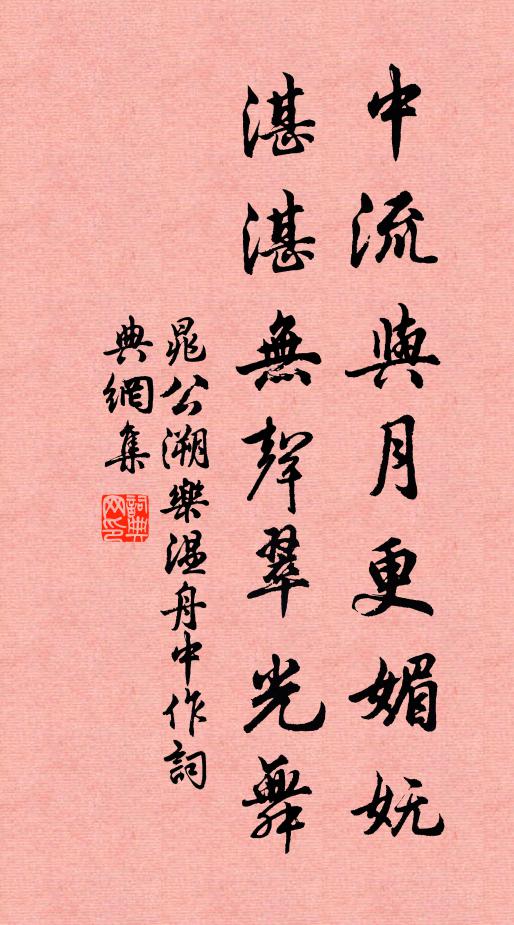 中流與月更媚妩
湛湛無聲翠光舞
晁公溯樂温舟中作詞
典網集
詞典
网印